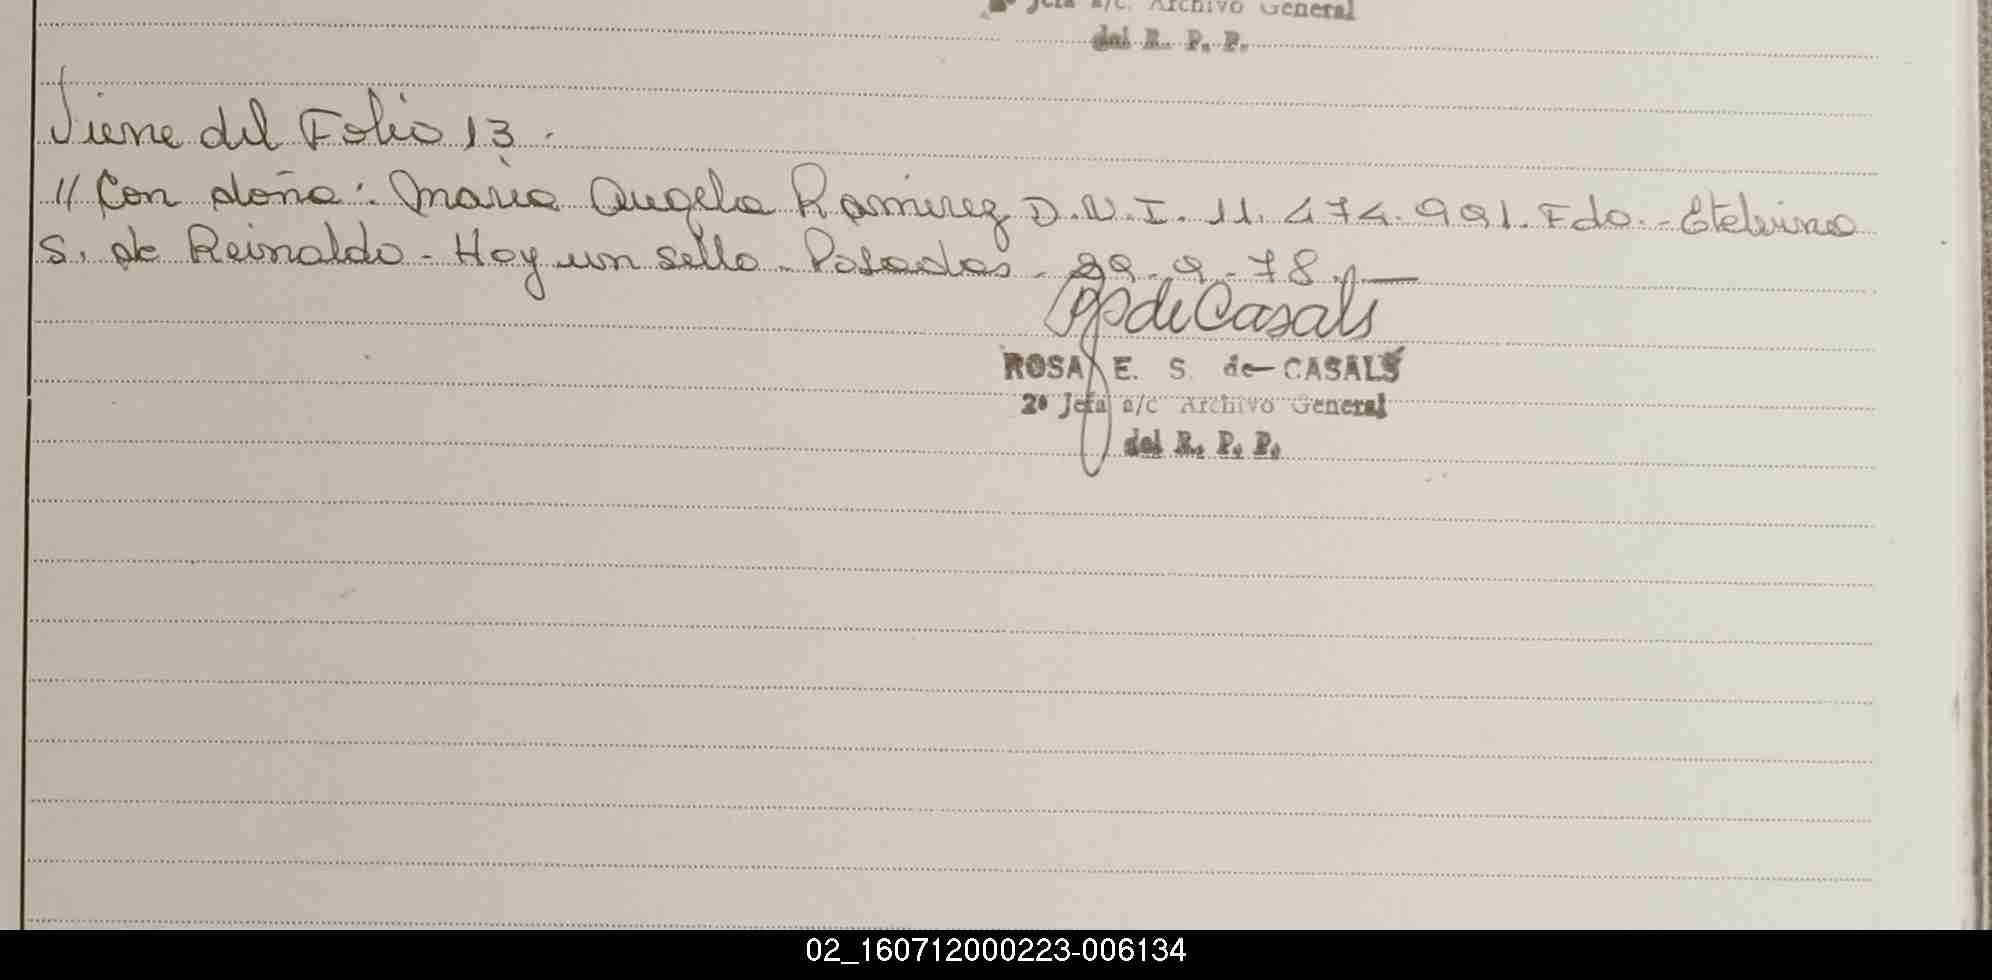 2º Jefa a/c. Archivo General
del R. P. P.
Viene del Folio 13.
// Con doña: Maria Angela Ramirez D.N.I. 11.474.991. Fdo.- Etelvina
S. de Reinaldo - Hay un sello - Posadas - 29-9-78.—
RSdeCasals
ROSA E. S. de CASALS
2º Jefa a/c Archivo General
del R. P. P.
02_160712000223-006134